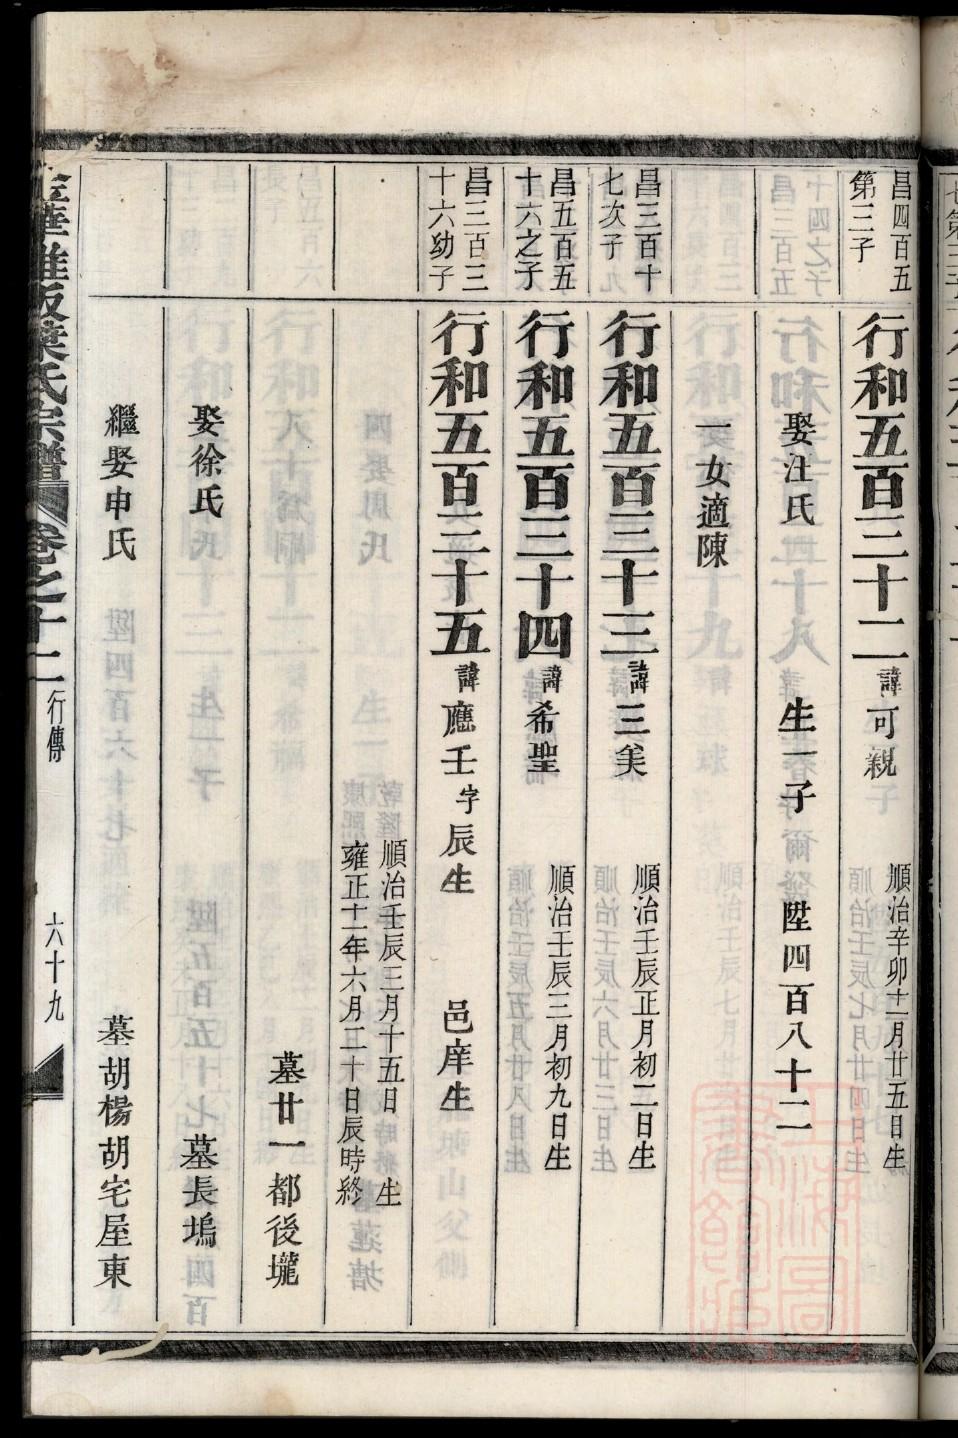 昌四百五
第三子
行和五百三十二
諱可親
順治辛卯十一月廿五日生
娶汪氏
生一子
陞四百八十二
一女適陳
昌三百十
七次子
行和五百三十三
諱三美
順治壬辰正月初二日生
昌五百五
十六之子
行和五百三十四
諱希聖
順治壬辰三月初九日生
昌三百三
十六幼子
行和五百三十五
諱應壬字辰生
邑庠生
順治壬辰三月十五日生
雍正十一年六月二十日辰時終
墓廿一都後壠
娶徐氏
墓長塢
繼娶申氏
墓胡楊胡宅屋東
氏宗譜
卷之十二
行傳
六十九